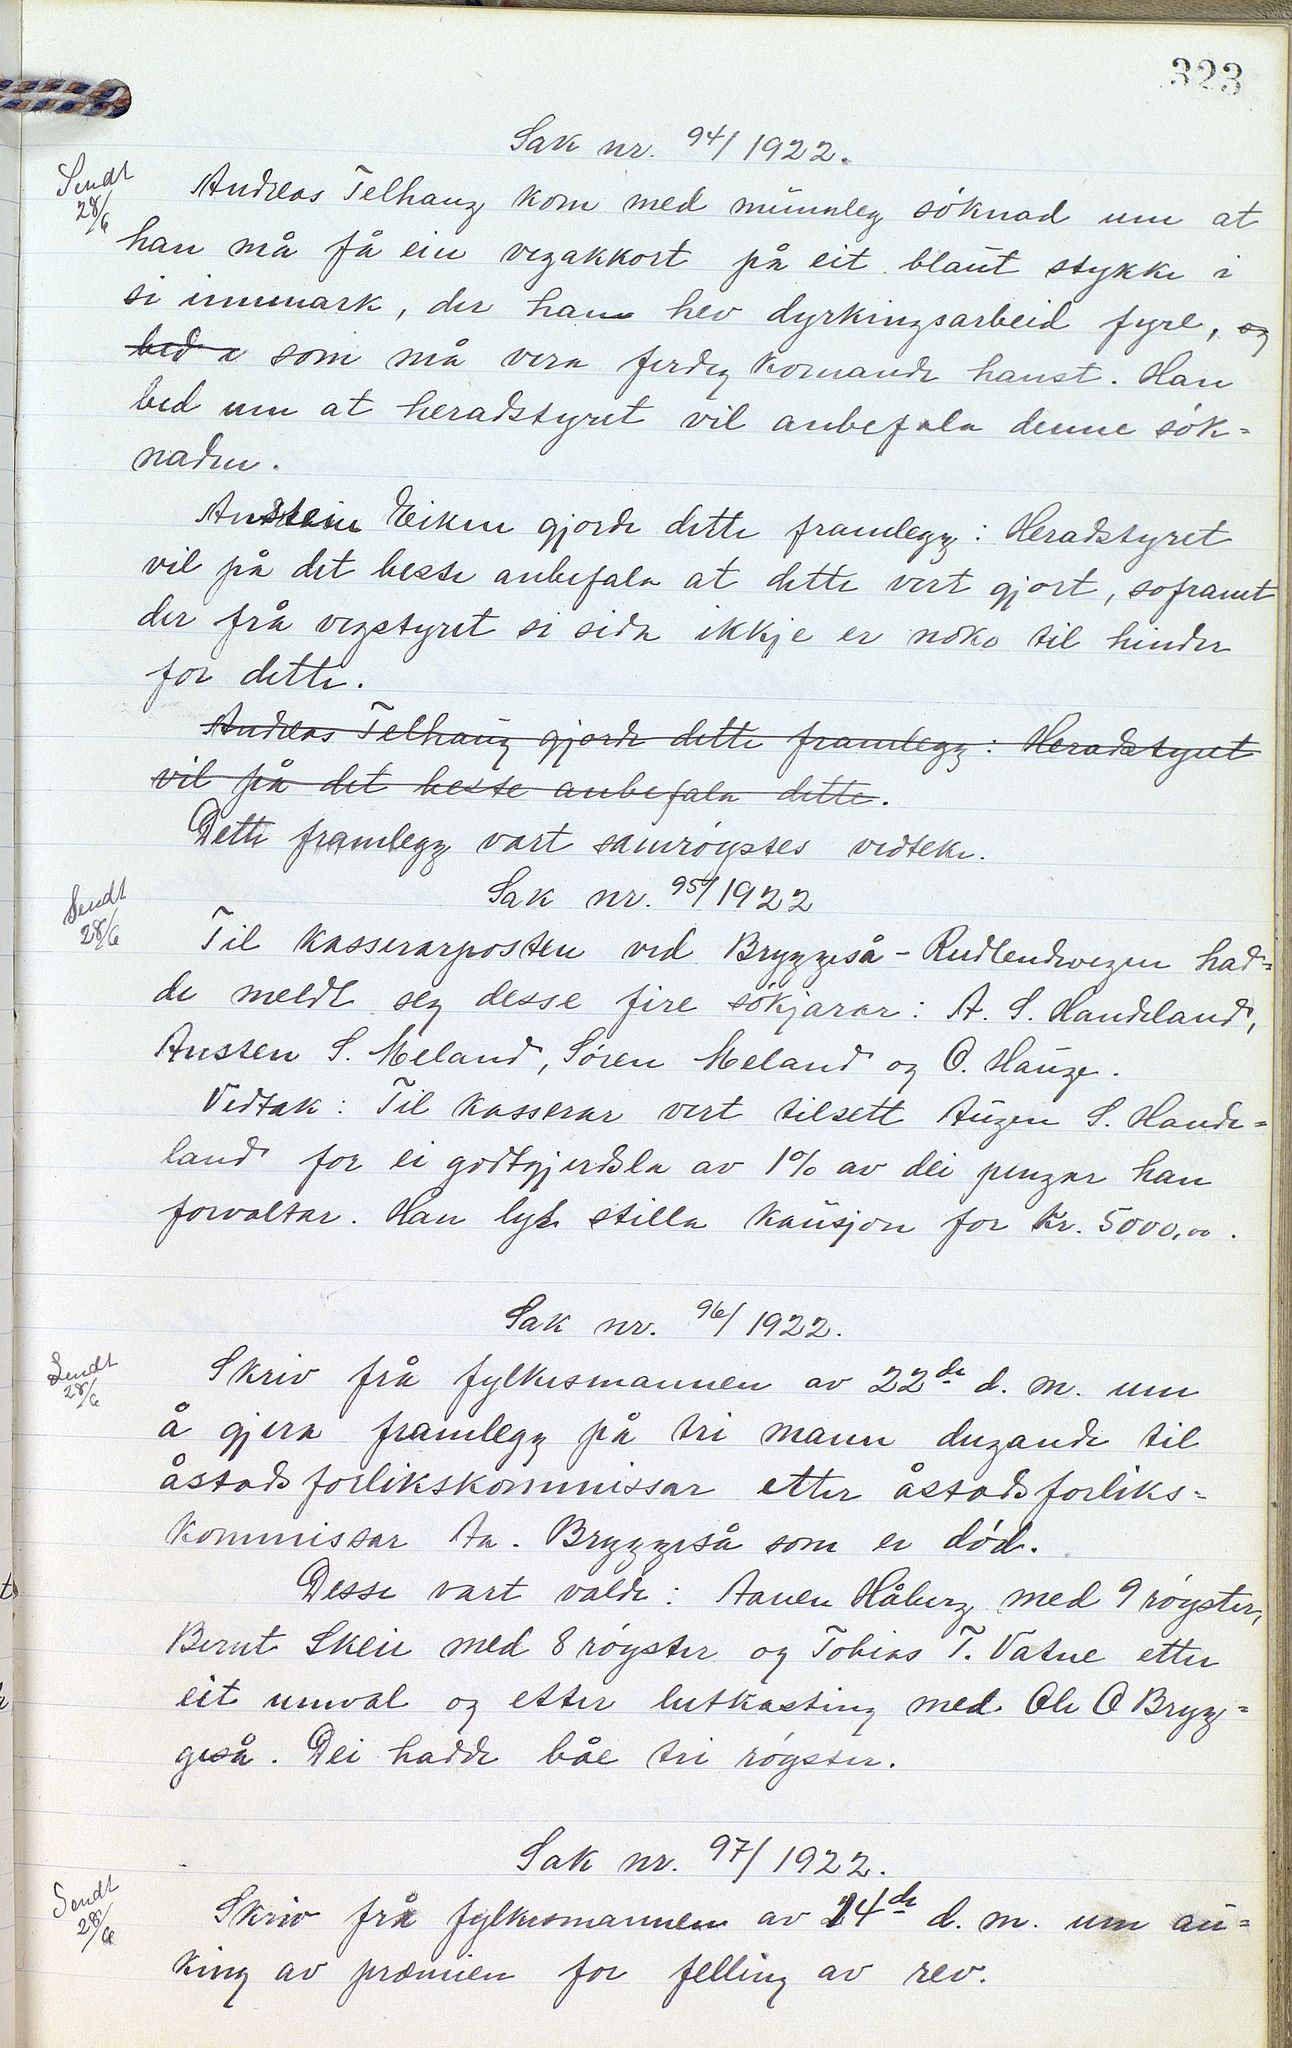 323
Sak nr. 94/1922.
Sendt
28/6
Andreas Telhaug kom med munnleg söknad um at
han må få ein vegakkort på eit blaut stykke i
si innmark, der han hev dyrkingsarbeid fyre, og
bed a som må vera ferdig komande haust. Han
bed um at heradstyret vil anbefala denne sök=
naden.
Anstein Eiken gjorde dette framlegg: Heradstyret
vil på det beste anbefala at dette vert gjort, soframt
der frå vegstyret si sida ikkje er noko til hinder
for dette.
Andreas Telhaug gjorde dette framlegg: Heradstyret
vil på det beste anbefala dette.
Dette framlegg vart samrøystes vedteke.
Sak nr. 95/1922
Sendt
28/6
Til kasserarposten ved Bryggeså - Rudlendvegen had=
de meldt seg desse fire sökjarar: A. S. Handeland,
Austen S. Meland, Søren Meland og O. Hauge.
Vedtak: Til kasserar vert tilsett Augen S. Hande=
land for ei godtgjerdsla av 1% av dei pengar han
forvaltar. Han lyt stilla kausjon for kr. 5000,00.
Sak nr. 96/1922.
Sendt
28/6
Skriv frå fylkesmannen av 22de d. m. um
å gjera framlegg på tri mann dugande til
åstadsforlikskommissar etter åstadsforliks=
kommissar Aa. Bryggeså som er död.
Desse vart valde: Aanen Håberg med 9 røyster,
Bernt Skeie med 8 røyster og Tobias T. Vatne etter
eit umval og etter lutkasting med Ole O Bryg=
geså. Dei hadde båe tri røyster.
Sak nr. 97/1922.
Sendt
28/6
Skriv frå fylkesmannen av 14de d. m. um au=
king av præmien for felling av rev.